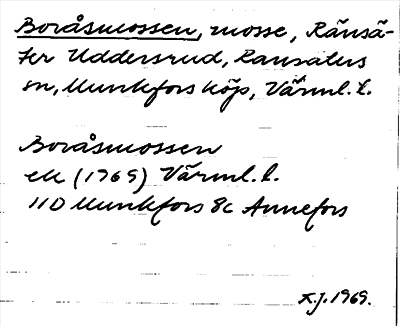 Boråsmossen, mosse, Ränsä-
ter Uddersrud, Ransäters
sn, Munkfors köp, Värml. l.
Boråsmossen
ek (1969) Värml. l.
11D Munkfors 8c Annefors
X.J. 1969.